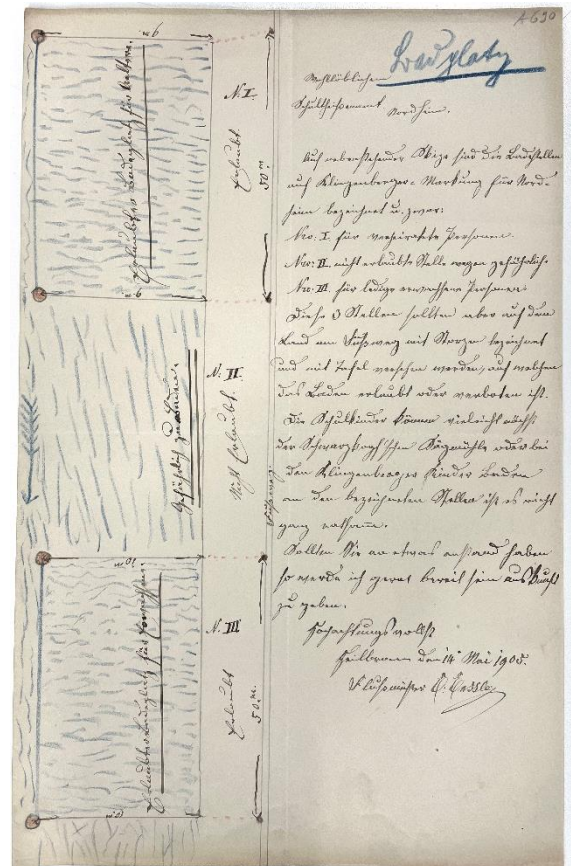 A 690
Badplatz
Wohllöbliches
Schultheißenamt
Nordheim.
Auf nebenstehender Skize sind die Badestellen
auf Klingenberger-Markung für Nord-
heim bezeichnet u. zwar:
Nro: I. für verheiratete Personen.
Nro: II. nicht erlaubte Stelle wegen gefährlich.
Nro: III. für ledige erwachsene Personen.
Diese 3 Stellen sollten aber auf dem
Land am Fußweg mit bezeichnet
und mit Tafel versehen werden, auf welchen
das Baden erlaubt oder verboten ist.
Die Schulkinder können vieleicht nächst
der Sägmühle oder bei
den Klingenberger Kinder baden
an den bezeichneten Stellen ist es nicht
ganz
Sollten Sie an etwas anstand haben
so werde ich gerne bereit sein
zu geben.
Hochachtungsvollst
Heilbronn den 14 Mai 1905.
Flussmeister
N. I.
Erlaubt.
50 m.
Erlaubter Badeplatz für
N. II.
Nicht Erlaubt.
Gefährlich zu baden.
Fußweg
N. III
Erlaubt
50 m.
Erlaubter Badeplatz für